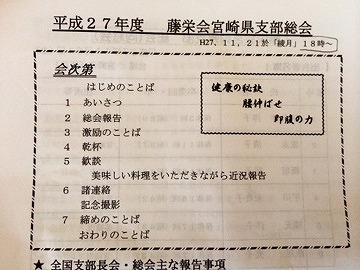 平成27年度 藤栄会宮崎県支部総会
H27、11、21於「綾月」18時~
会次第
はじめのことば
1 あいさつ
2 総会報告
3 激励のことば
4 乾杯
5 歓談
美味しい料理をいただきながら近況報告
6 諸連絡
記念撮影
7 締めのことば
おわりのことば
健康の秘訣
腰伸ばせ
即腹の力
★ 全国支部長会・総会主な報告事項